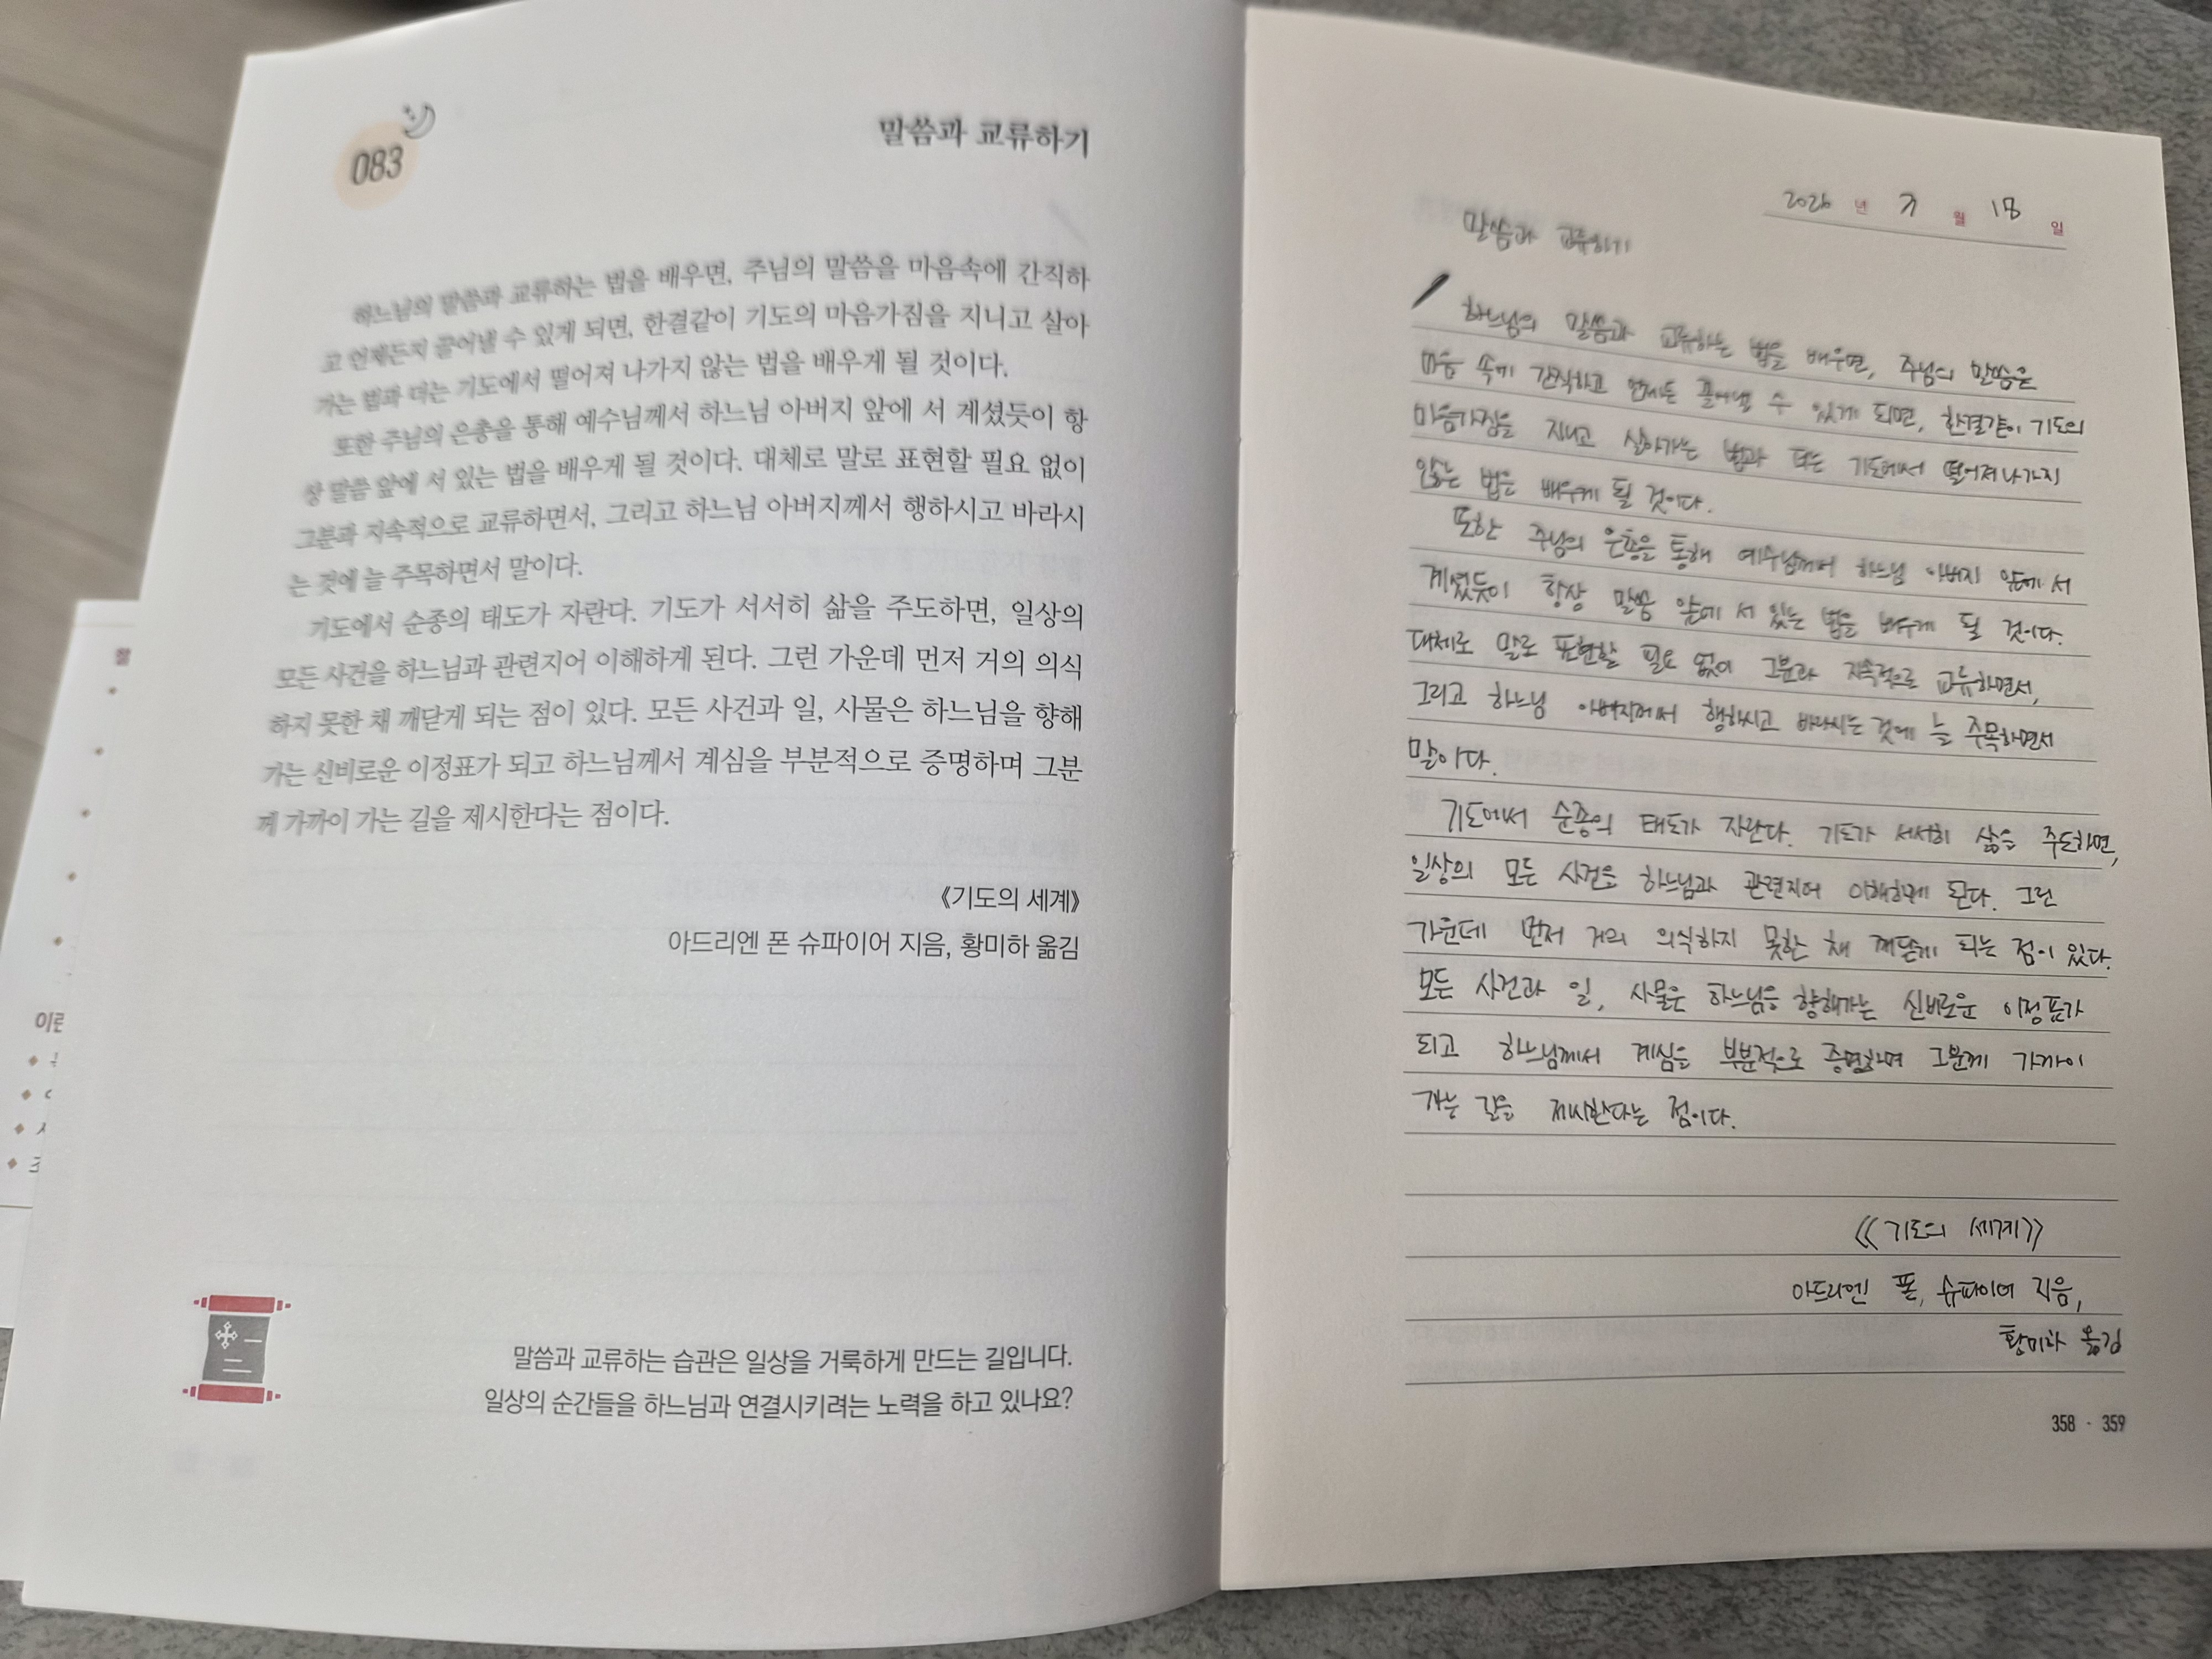 083
말씀과 교류하기
하느님의 말씀과 교류하는 법을 배우면, 주님의 말씀을 마음속에 간직하
고 언제든지 끌어낼 수 있게 되면, 한결같이 기도의 마음가짐을 지니고 살아
가는 법과 더는 기도에서 떨어져 나가지 않는 법을 배우게 될 것이다.
또한 주님의 은총을 통해 예수님께서 하느님 아버지 앞에 서 계셨듯이 항
상 말씀 앞에 서 있는 법을 배우게 될 것이다. 대체로 말로 표현할 필요 없이
그분과 지속적으로 교류하면서, 그리고 하느님 아버지께서 행하시고 바라시
는 것에 늘 주목하면서 말이다.
기도에서 순종의 태도가 자란다. 기도가 서서히 삶을 주도하면, 일상의
모든 사건을 하느님과 관련지어 이해하게 된다. 그런 가운데 먼저 거의 의식
하지 못한 채 깨닫게 되는 점이 있다. 모든 사건과 일, 사물은 하느님을 향해
가는 신비로운 이정표가 되고 하느님께서 계심을 부분적으로 증명하며 그분
께 가까이 가는 길을 제시한다는 점이다.
《기도의 세계》
아드리엔 폰 슈파이어 지음, 황미하 옮김
말씀과 교류하는 습관은 일상을 거룩하게 만드는 길입니다.
일상의 순간들을 하느님과 연결시키려는 노력을 하고 있나요?
이런
2026 년 7 월 18 일
말씀과 교류하기
하느님의 말씀과 교류하는 법을 배우면, 주님의 말씀을
마음 속에 간직하고 언제든 끌어낼 수 있게 되면, 한결같이 기도의
마음가짐을 지니고 살아가는 법과 더는 기도에서 떨어져 나가지
않는 법을 배우게 될 것이다.
또한 주님의 은총을 통해 예수님께서 하느님 아버지 앞에 서
계셨듯이 항상 말씀 앞에 서 있는 법을 배우게 될 것이다.
대체로 말로 표현할 필요 없이 그분과 지속적으로 교류하면서,
그리고 하느님 아버지께서 행하시고 바라시는 것에 늘 주목하면서
말이다.
기도에서 순종의 태도가 자란다. 기도가 서서히 삶을 주도하면,
일상의 모든 사건을 하느님과 관련지어 이해하게 된다. 그런
가운데 먼저 거의 의식하지 못한 채 깨닫게 되는 점이 있다.
모든 사건과 일, 사물은 하느님을 향해가는 신비로운 이정표가
되고 하느님께서 계심을 부분적으로 증명하며 그분께 가까이
가는 길을 제시한다는 점이다.
《기도의 세계》
아드리엔 폰, 슈파이어 지음,
황미하 옮김
358 · 359